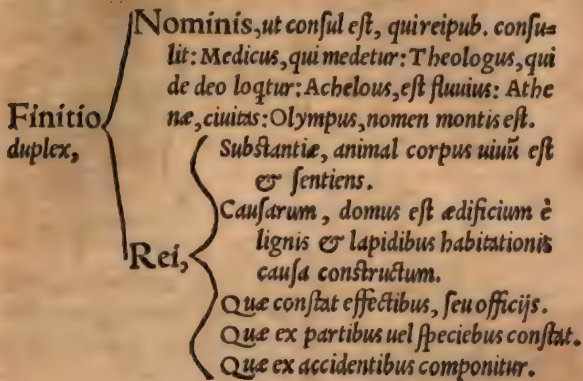 Nominis, ut conſul eſt, qui reipub. conſu=
lit: Medicus, qui medetur: Theologus, qui
de deo loqtur: Achelous, eſt fluuius: Athe
næ, ciuitas: Olympus, nomen montis eſt.
Finitio
duplex,
Subſtantiæ, animal corpus uiuũ eſt
& ſentiens.
Cauſarum, domus eſt ædificium è
lignis & lapidibus habitationis
cauſa conſtructum.
Rei,
Quæ conſtat effectibus, ſeu officijs.
Quæ ex partibus uel ſpeciebus conſtat.
Quæ ex accidentibus componitur.